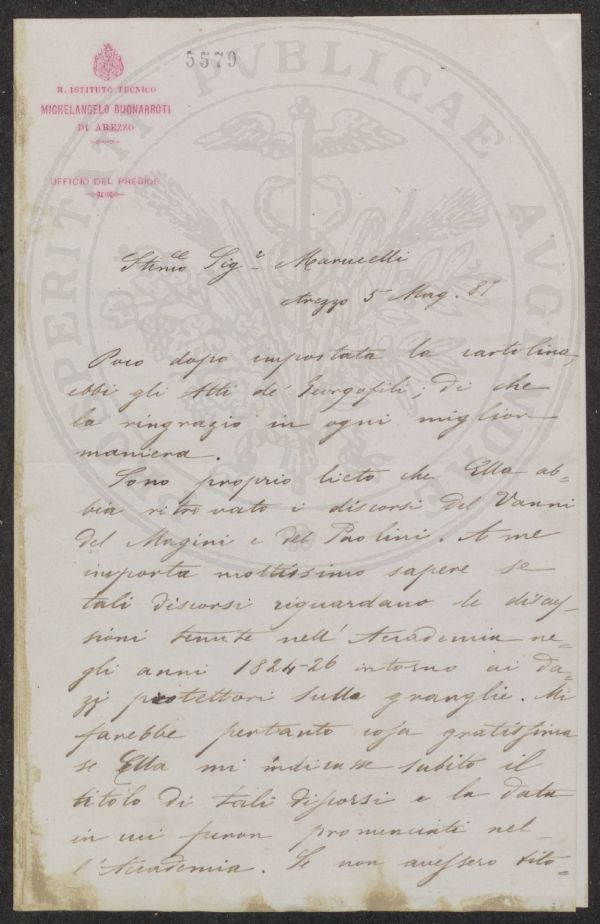 5579
R. ISTITUTO TECNICO
MICHELANGELO BUONARROTI
DI AREZZO
UFFICIO DEL PRESIDE
PROSPERITATI PVBLICAE AVGENDAE
Stimo Sigr. Marucelli
Arezzo 5 Mag. 81
Poco dopo impostata la cartolina,
ebbi gli Atti de' Georgofili; di che
la ringrazio in ogni miglior
maniera.
Sono proprio lieto che Ella ab=
bia ritrovato i discorsi del Vanni
del Magini e del Paolini. A me
importa moltissimo sapere se
tali discorsi riguardano le discus=
sioni tenute nell'Accademia ne=
gli anni 1824-26 intorno ai da=
zj protettori sulle granaglie. Mi
farebbe pertanto cosa gratissima
se Ella mi indicasse subito il
titolo di tali discorsi e la data
in cui furon pronunciati nel=
l'Accademia. Se non avessero tito=